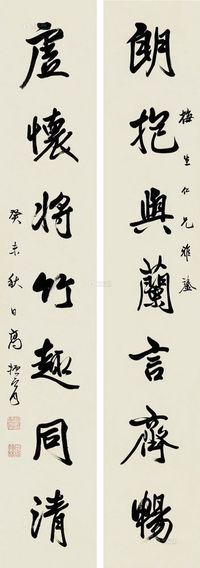 梅生仁兄雅鑒
朗抱與蘭言齊暢
虛懷將竹趣同清
癸未秋日高振霄